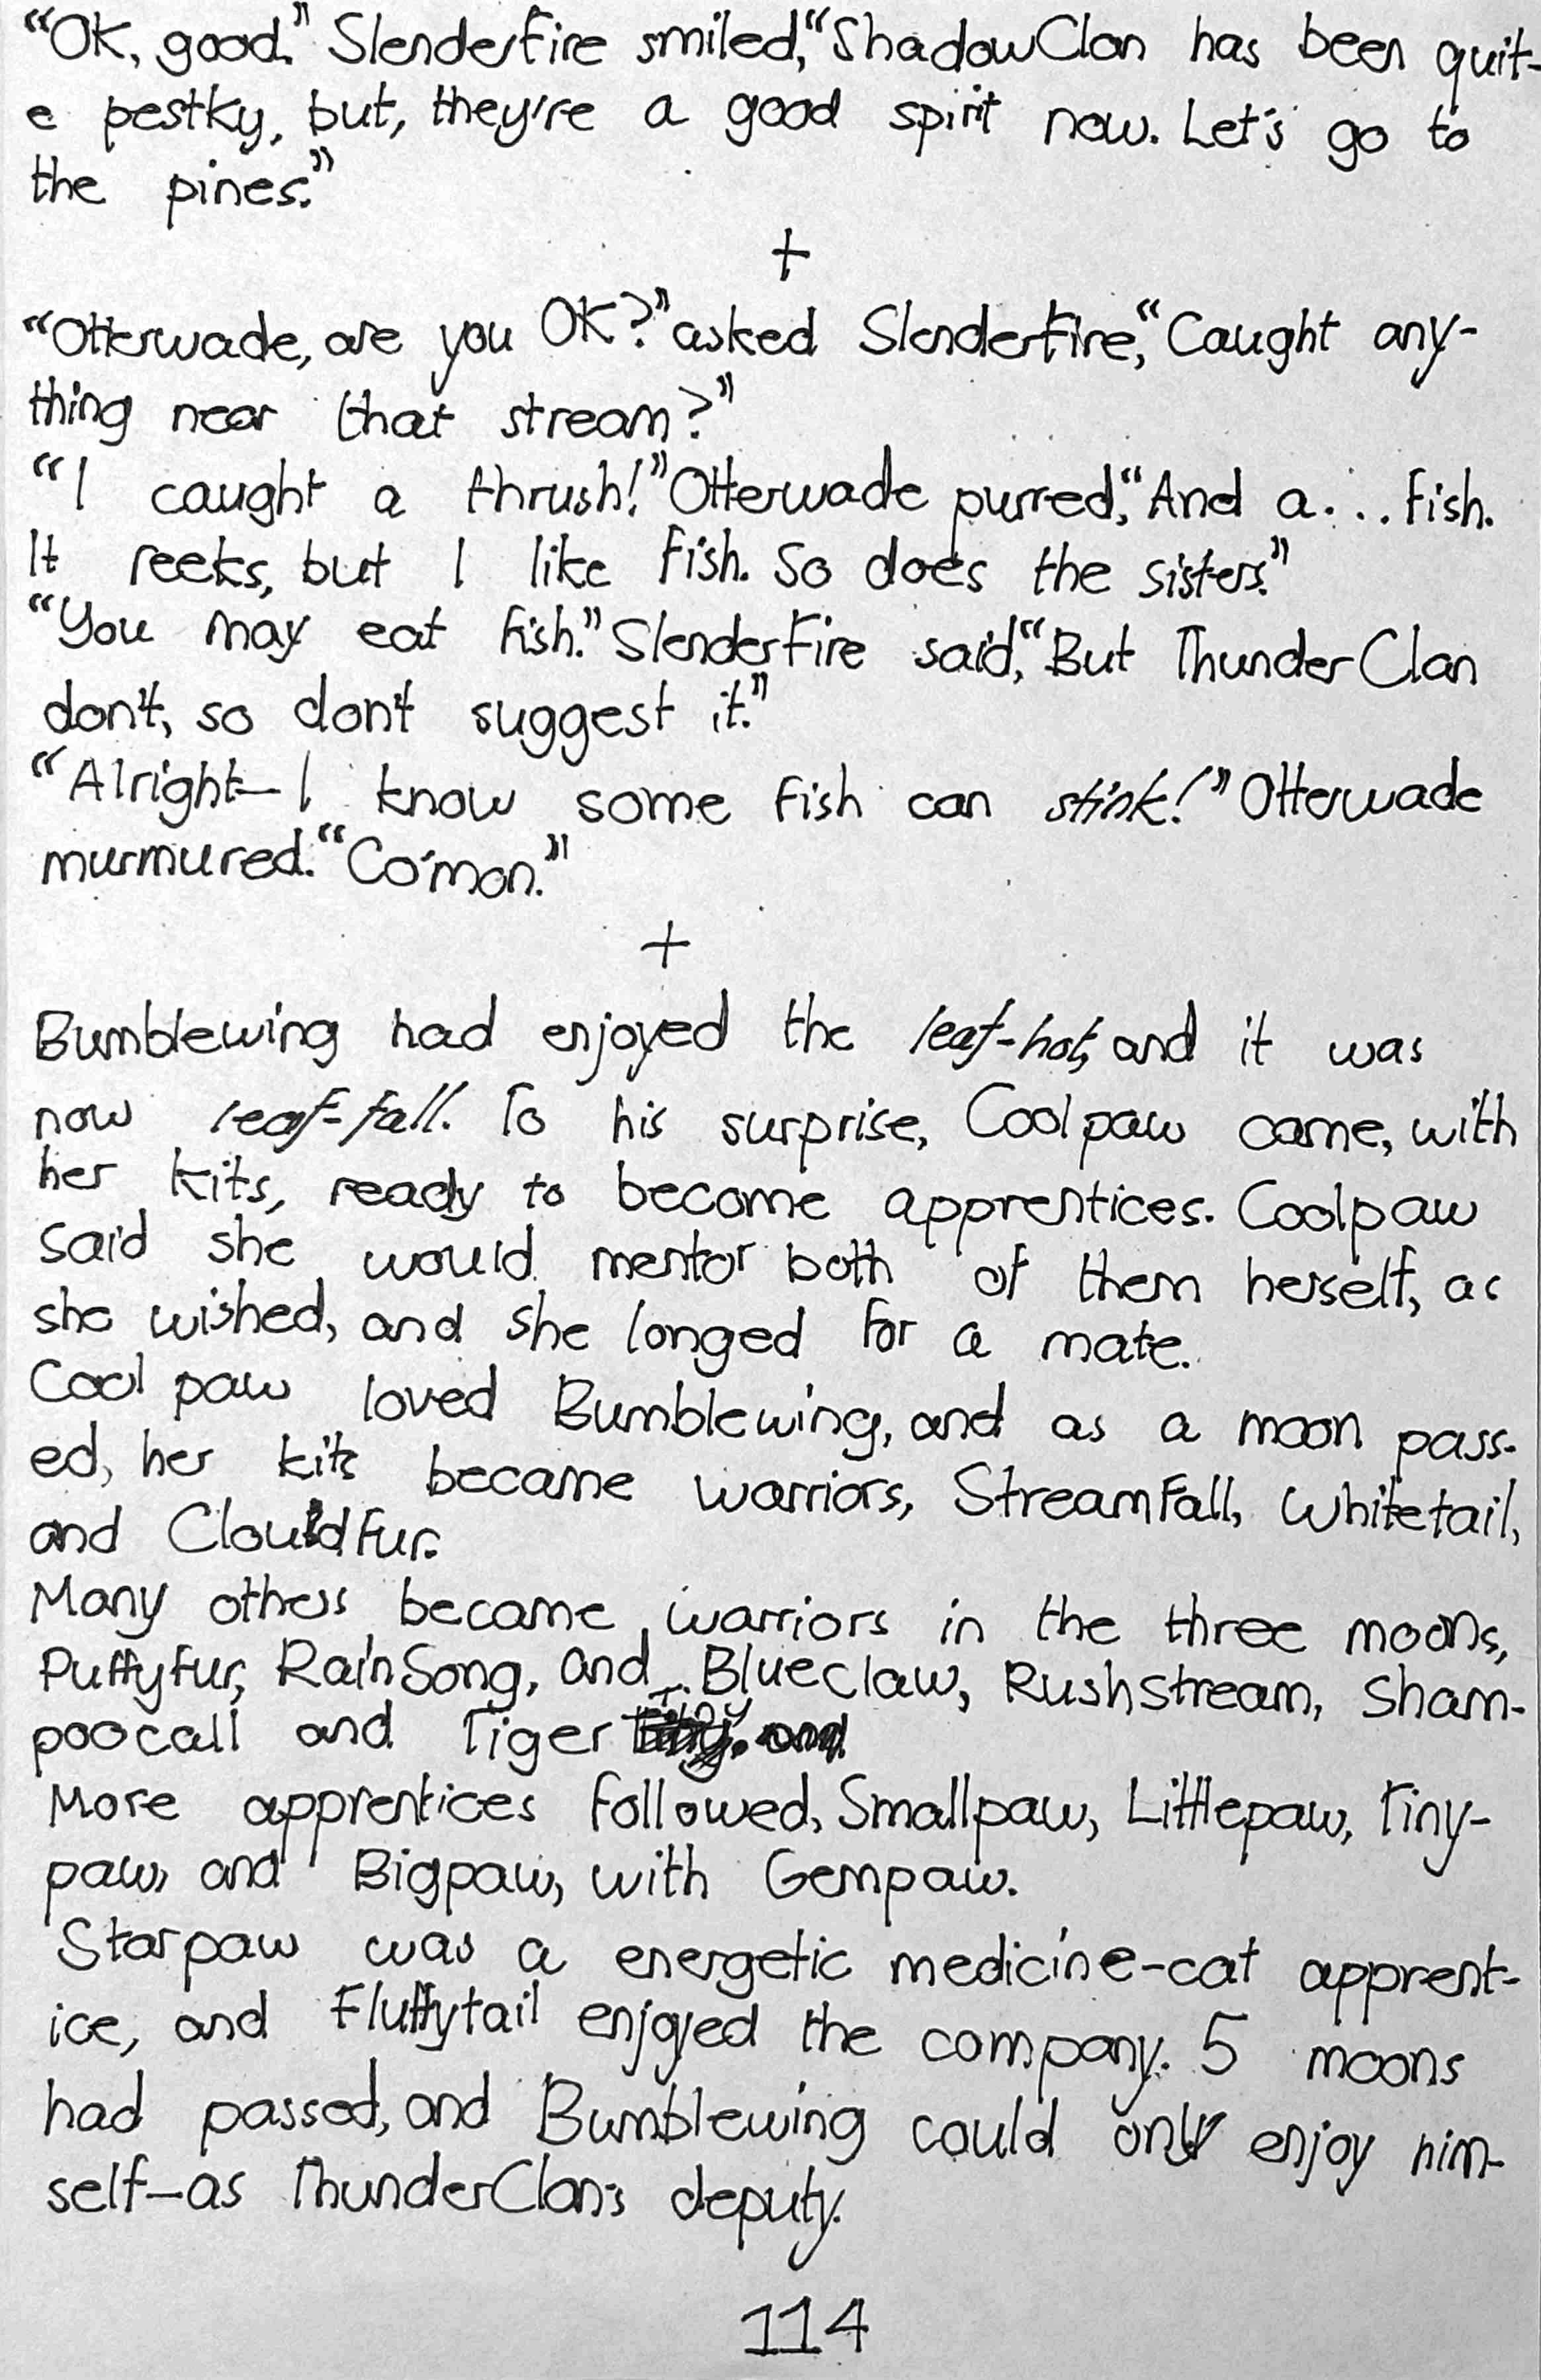 “OK, good.” Slenderfire smiled, “ShadowClan has been quit-
e pestky, but, they're a good spirit now. Let's go to
the pines.”
+
“Otterwade, are you OK?” asked Slenderfire, “Caught any-
thing near that stream?”
“I caught a thrush!” Otterwade purred, “And a... fish.
It reeks, but I like fish. So does the sisters.”
“You may eat fish.” Slenderfire said, “But ThunderClan
don't, so don't suggest it.”
“Alright—I know some fish can stink!” Otterwade
murmured. “Co'mon.”
+
Bumblewing had enjoyed the leaf-hot, and it was
now leaf-fall. To his surprise, Coolpaw came, with
her kits, ready to become apprentices. Coolpaw
said she would mentor both of them herself, as
she wished, and she longed for a mate.
Coolpaw loved Bumblewing, and as a moon pass-
ed, her kits became warriors, Streamfall, Whitetail,
and Cloudfur.
Many others became warriors in the three moons,
Puffyfur, RainSong, and Blueclaw, Rushstream, Sham-
poocall and Tiger
More apprentices followed, Smallpaw, Littlepaw, Tiny-
paw, and Bigpaw, with Gempaw.
Starpaw was a energetic medicine-cat apprent-
ice, and Fluffytail enjoyed the company. 5 moons
had passed, and Bumblewing could only enjoy him-
self—as ThunderClan's deputy.
114